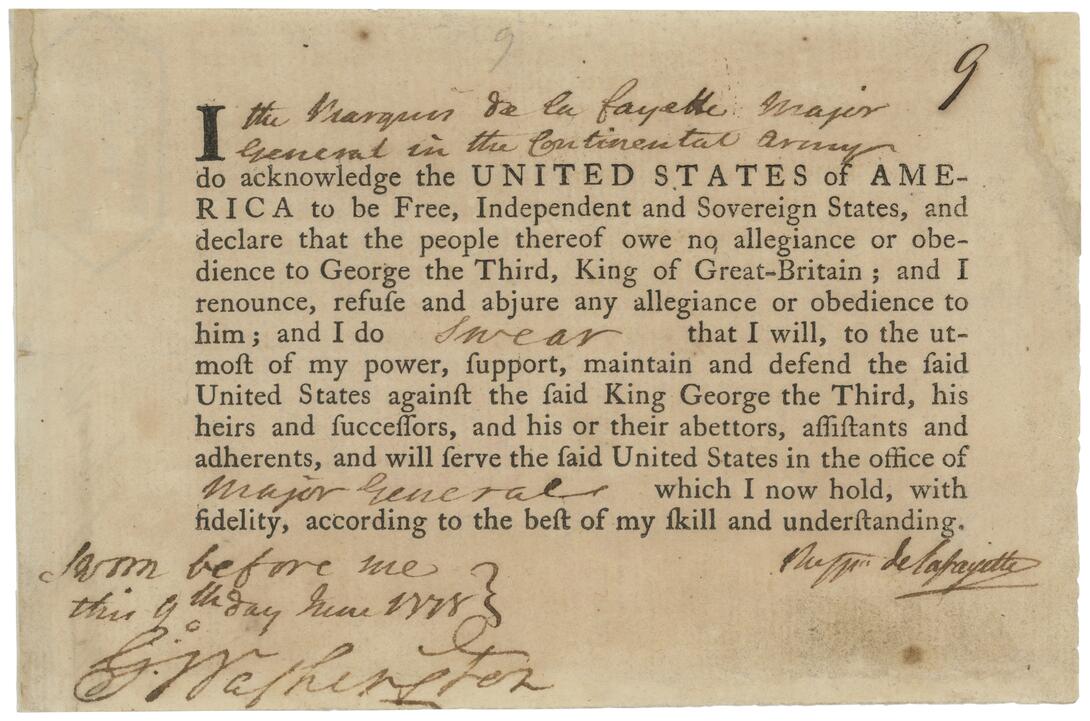 9
9
I the Marquis de la fayette Major
General in the Continental Army
do acknowledge the UNITED STATES of AME-
RICA to be Free, Independent and Sovereign States, and
declare that the people thereof owe no allegiance or obe-
dience to George the Third, King of Great-Britain; and I
renounce, refuſe and abjure any allegiance or obedience to
him; and I do swear that I will, to the ut-
moſt of my power, ſupport, maintain and defend the ſaid
United States againſt the ſaid King George the Third, his
heirs and ſucceſſors, and his or their abettors, aſſiſtants and
adherents, and will ſerve the ſaid United States in the office of
Major General which I now hold, with
fidelity, according to the beſt of my ſkill and underſtanding.
Sworn before me
this 9th day June 1778
de Lafayette
Go. Washington